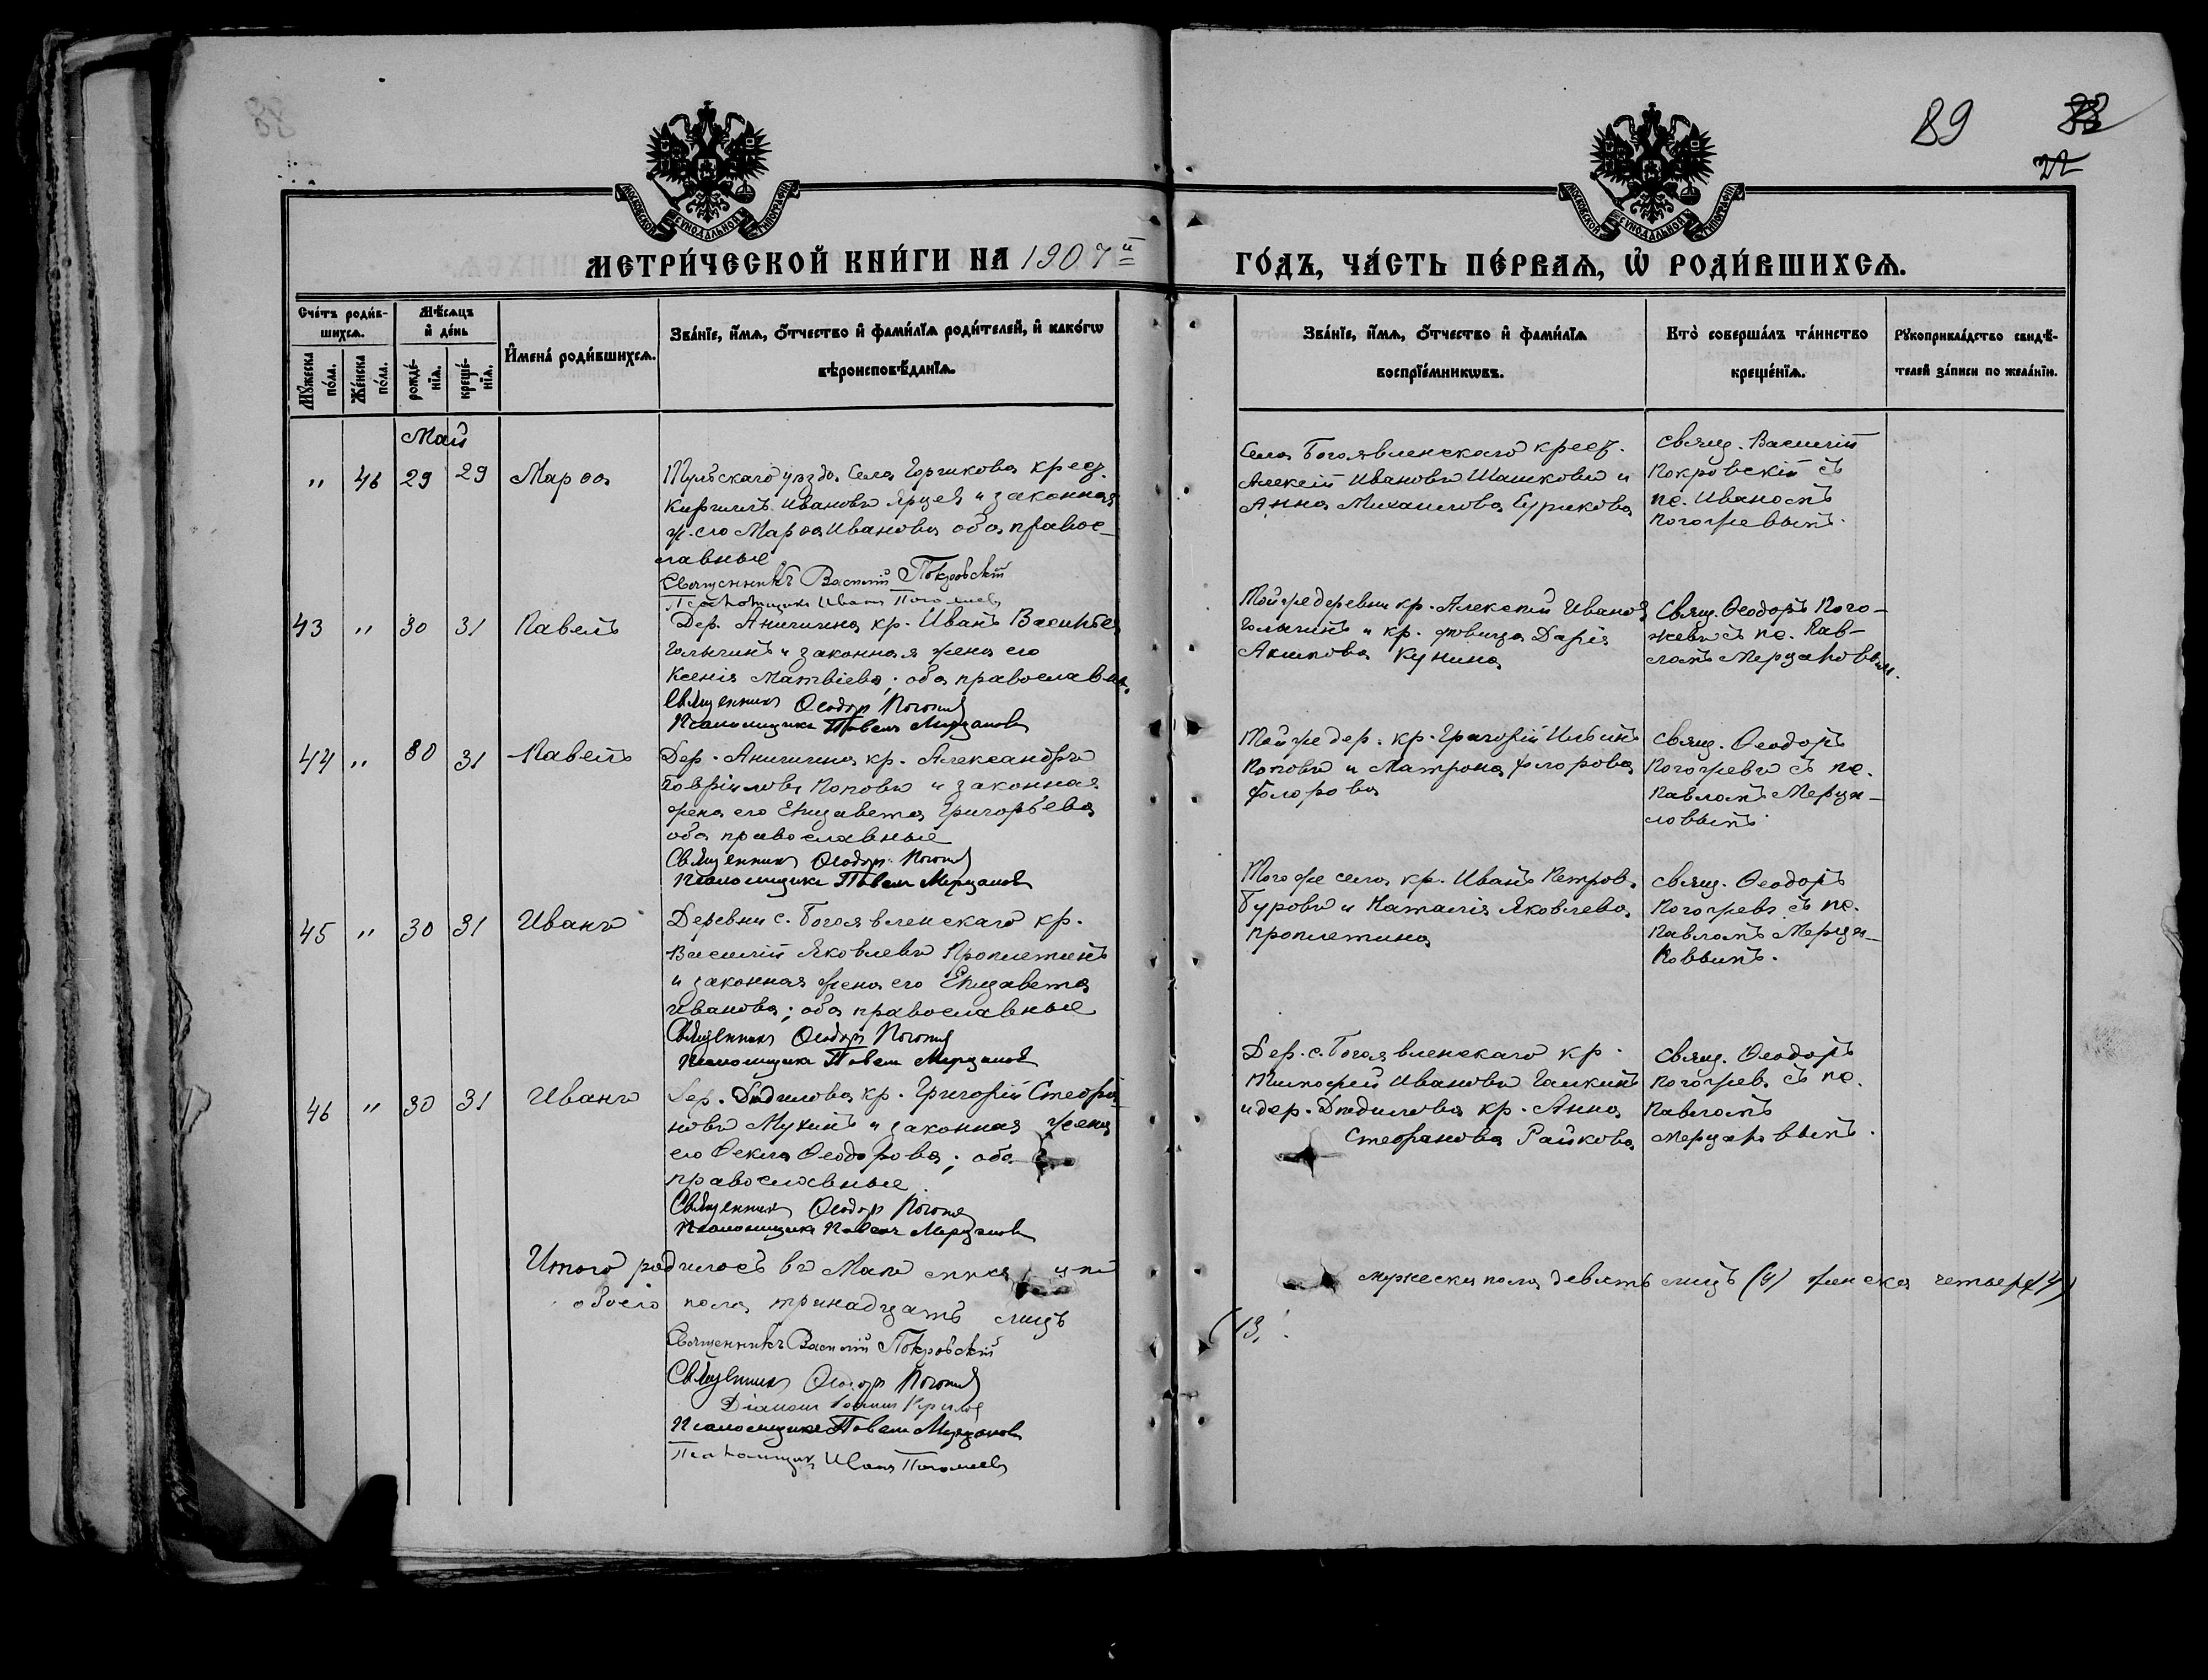 88
89
МОСКОВСКОЙ СѴНОДАЛЬНОЙ ТИПОГРАФІИ
МОСКОВСКОЙ СѴНОДАЛЬНОЙ ТИПОГРАФІИ
МЕТРИ́ЧЕСКОЙ КНИ́ГИ НА 1907й
ГО́ДЪ, ЧА́СТЬ ПЕ́РВАЯ, Ѡ҆ РОДИ́ВШИХСЯ.
Сче́тъ роди́в-
шихся.
Мѣ́сяцъ
и҆ де́нь
Му́жеска по́ла.
Же́нска по́ла.
рожде́-нїя.
креще́-нїя.
И҆мена́ роди́вшихся.
Зва́нїе, и҆́мя, ѻ҆́тчество и҆ фами́лїя роди́телей, и҆ како́гѡ
вѣроисповѣ́данїя.
Зва́нїе, и҆́мя, ѻ҆́тчество и҆ фами́лїя
воспрїе́мникѡвъ.
Кто̀ соверша́лъ та́инство
креще́нїя.
Рꙋкоприкла́дство свидѣ́-
телей за́писи по жела́нїю.
Май
" 46 29 29 Марѳа
Тульскаго уѣзда. Села Горшкова крест.
Кириллъ Ивановъ Ярцевъ и законная
ж. его Марѳа Иванова оба правос-
лавные
Священникъ Василій Покровскій
Псаломщикъ Иванъ Погожевъ
Села Богоявленскаго крест.
Алексій Ивановъ Шашковъ и
Анна Михаилова Сурикова
Свящ. Василій
Покровскій съ
пс. Иваномъ
Погожевымъ.
43 " 30 31 Павелъ
Дер. Аничина кр. Иванъ Васильев
Голычинъ и законная жена его
Ксенія Матвіева; оба православн.
Священникъ Ѳеодоръ Погожевъ
Псаломщикъ Павелъ Мерцаловъ
Той же деревни кр. Алексѣй Иванов
Голычинъ и кр. дѣвица Дарія
Акимова Кунина
Свящ. Ѳеодоръ Пого-
жевъ съ пс. Пав-
ломъ Мерцаловым.
44 " 30 31 Павелъ
Дер. Аничина кр. Александръ
Гавріиловъ Поповъ и законная
жена его Елизавета Григорьева
оба православные
Священникъ Ѳеодоръ Погожевъ
Псаломщикъ Павелъ Мерцаловъ
Той же дер. кр. Григорій Ильинъ
Поповъ и Матрона Флорова
Флорова
Свящ. Ѳеодоръ
Погожевъ съ пс.
Павломъ Мерца-
ловымъ.
45 " 30 31 Иванъ
Деревни с. Богоявленскаго кр.
Василій Яковлевъ Проплетинъ
и законная жена его Елизавета
Иванова; оба православные
Священникъ Ѳеодоръ Погожевъ
Псаломщикъ Павелъ Мерцаловъ
Того же села кр. Иванъ Петров.
Гуровъ и Наталія Яковлева
Проплетина
Свящ. Ѳеодоръ
Погожевъ съ пс.
Павломъ Мерца-
ловымъ.
46 " 30 31 Иванъ
Дер. Дѣдилова кр. Григорій Стефа-
новъ Мухинъ и законная жена
его Ѳекла Ѳеодорова; оба
православные.
Священникъ Ѳеодоръ Погожевъ
Псаломщикъ Павелъ Мерцаловъ
Дер. с. Богоявленскаго кр.
Тимофей Ивановъ Галкинъ
и дер. Дѣдилова кр. Анна
Стефанова Райкова
Свящ. Ѳеодоръ
Погожев. съ пс.
Павломъ
Мерцаловымъ.
Итого родилось въ Маѣ
мужеска пола девять лицъ (9) женска четыре (4)
обоего пола тринадцать лицъ
(13).
Священникъ Василій Покровскій
Священникъ Ѳеодоръ Погожевъ
Псаломщикъ Павелъ Мерцаловъ
Псаломщикъ Иванъ Погожевъ